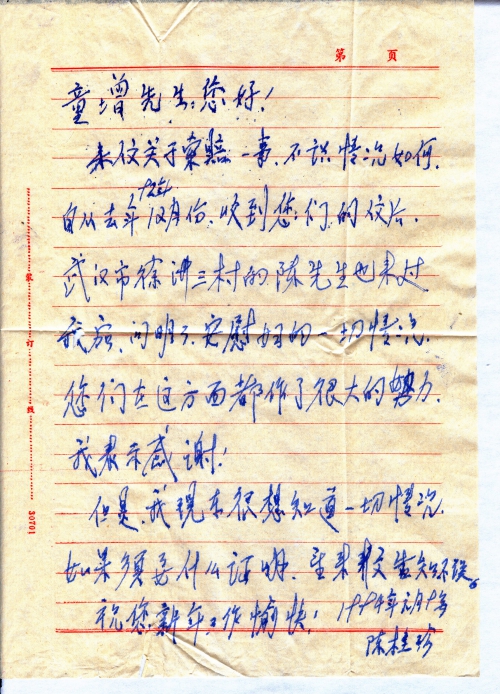 第 页
童增先生:您好!
来仪关于索赔一事,不识情况如何,
自从去年12月份,收到您们的仪后,
武汉市徐 三村的陈先生也来过
我家,问明了安慰妇的一切情况,
您们在这方面都作了很大的努力,
我表示感谢!
但是,我现在很想知道一切情况,
如果须要什么证明,
祝您新年工作愉快!
1994年元月9号
陈桂珍
装 订 线 30701